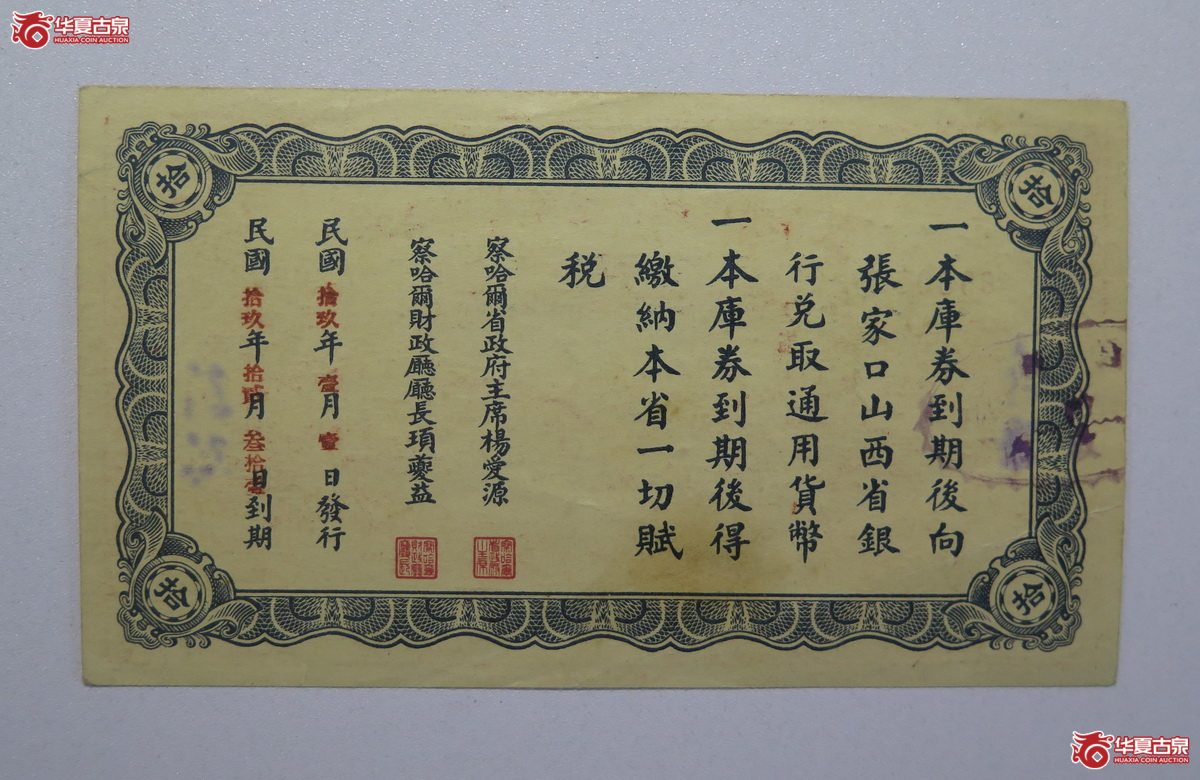 华夏古泉
HUAXIA COIN AUCTION
拾
拾
一本庫券到期後向
張家口山西省銀
行兑取通用貨幣
一本庫券到期後得
繳納本省一切賦
税
察哈爾省政府主席楊愛源
察哈爾財政廳廳長項夔益
民國拾玖年壹月壹日發行
民國拾玖年拾貳月叁拾壹日到期
拾
拾
华夏古泉
HUAXIA COIN AUCTION